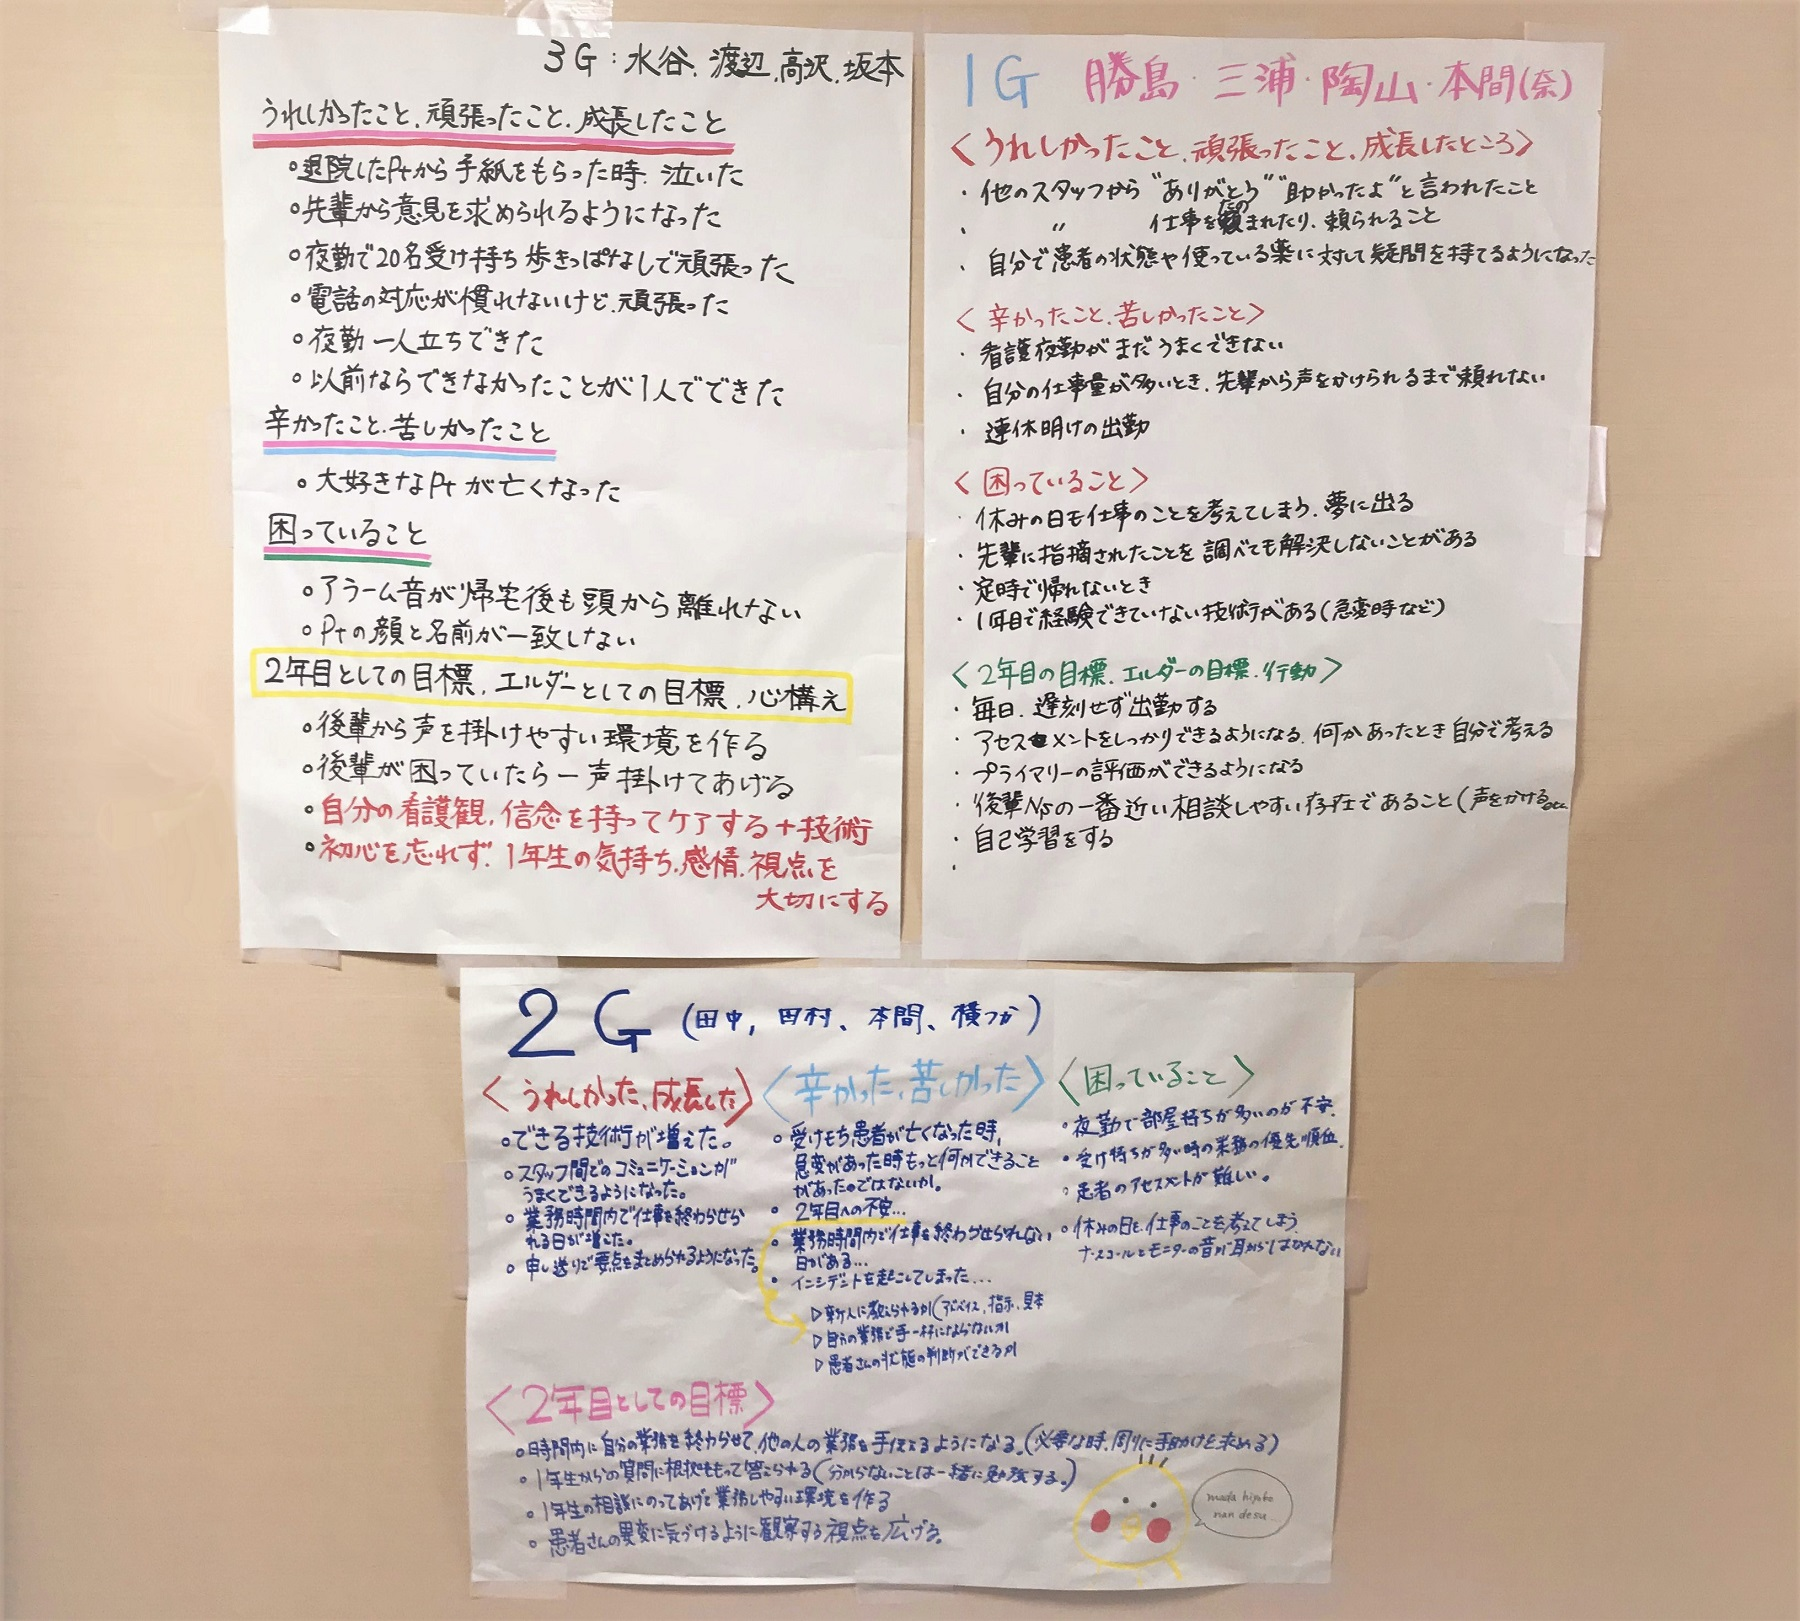 3G：水谷.渡辺.高沢.坂本
うれしかったこと.頑張ったこと.成長したこと
○退院したPtから手紙をもらった時.泣いた
○先輩から意見を求められるようになった
○夜勤で20名受け持ち歩きっぱなしで頑張った
○電話の対応が慣れないけど.頑張った
○夜勤一人立ちできた
○以前ならできなかったことが1人でできた
辛かったこと.苦しかったこと
○大好きなPtが亡くなった
困っていること
○アラーム音が帰宅後も頭から離れない
○Ptの顔と名前が一致しない
2年目としての目標.エルダーとしての目標.心構え
○後輩から声を掛けやすい環境を作る
○後輩が困っていたら一声掛けてあげる
・自分の看護観.信念を持ってケアする＋技術
・初心を忘れず.1年生の気持ち.感情.視点を
大切にする
1G 勝島・三浦・陶山・本間(奈)
＜うれしかったこと.頑張ったこと.成長したところ＞
・他のスタッフから“ありがとう”“助かったよ”と言われたこと
・　〃　仕事を頼まれたり、頼られること
・自分で患者の状態や使っている薬に対して疑問を持てるようになった
＜辛かったこと.苦しかったこと＞
・看護夜勤がまだうまくできない
・自分の仕事量が多いとき.先輩から声をかけられるまで頼れない
・連休明けの出勤
＜困っていること＞
・休みの日も仕事のことを考えてしまう.夢に出る
・先輩に指摘されたことを調べても解決しないことがある
・定時で帰れないとき
・1年目で経験できていない技術がある(急変時など)
＜2年目の目標.エルダーの目標.行動＞
・毎日.遅刻せず出勤する
・アセスメントをしっかりできるようになる.何かあったとき自分で考える
・プライマリーの評価ができるようになる
・後輩Nsの一番近い相談しやすい存在であること(声をかけるetc.
・自己学習をする
・
2G (田中,田村、本間、横つか)
＜うれしかった.成長した＞
○できる技術が増えた。
○スタッフ間でのコミュニケーションが
うまくできるようになった。
○業務時間内で仕事を終わらせら
れる日が増えた。
○申し送りで要点をまとめられるようになった。
＜辛かった.苦しかった＞
・受けもち患者が亡くなった時,
急変があった時もっと何かできること
があったのではないか。
・2年目への不安…
・業務時間内で仕事を終わらせられない
日がある…
・インシデントを起こしてしまった…
▷新人に教えられるか(アドバイス、指示、見本
▷自分の業務で手一杯にならないか
▷患者さんの状態の判断ができるか
＜困っていること＞
・夜勤で部屋持ちが多いのが不安.
・受け持ちが多い時の業務の優先順位.
・患者のアセスメントが難しい。
○休みの日も仕事のことを考えてしまう.
ナースコールとモニターの音が耳からはなれない
＜2年目としての目標＞
○時間内に自分の業務を終わらせて,他の人の業務を手伝えるようになる。(必要な時、周りに手助けを求める)
○1年生からの質問に根拠をもって答えられる(分からないことは一緒に勉強する。)
○1年生の相談にのってあげて業務しやすい環境を作る
○患者さんの異変に気づけるように観察する視点を広げる。
mada hiyoko
nan desu...